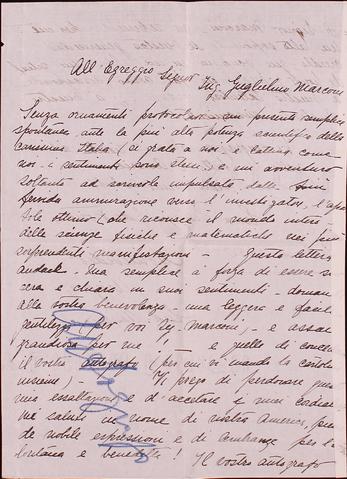 All Egreggio Signor Ing. Guglielmo Marconi
Senza ornamenti protocolari mi presenti semplice
spontanea ante la più alta potenza scientifica della
carissima Italia (sì grato a noi i latini come
noi i sentimenti
soltanto ad scrivervi impulsato dalla
ammirazione verso l'investigatore, l'
ottimo (che riconosce il mondo intero
delle scienze fisiche e matematiche nei più
sorprendenti manifestazioni - Questa lettera
audace - ma semplice a forza di essere sin
cera e chiara in suoi sentimenti - doman
alla vostra benevolenza - una leggera e facile
gentilezza (per voi Ing. Marconi, - e assai
grandiosa per me! e quello di
il vostro autografo (per cui vi mando la cartolina
) - Vi prego di perdonare
mia essaltazione e d'accettare i miei cordiali
saluti in nome di nostra America, pie
de nobile espressione e di per la
lontana e benedetta! Il vostro autografo